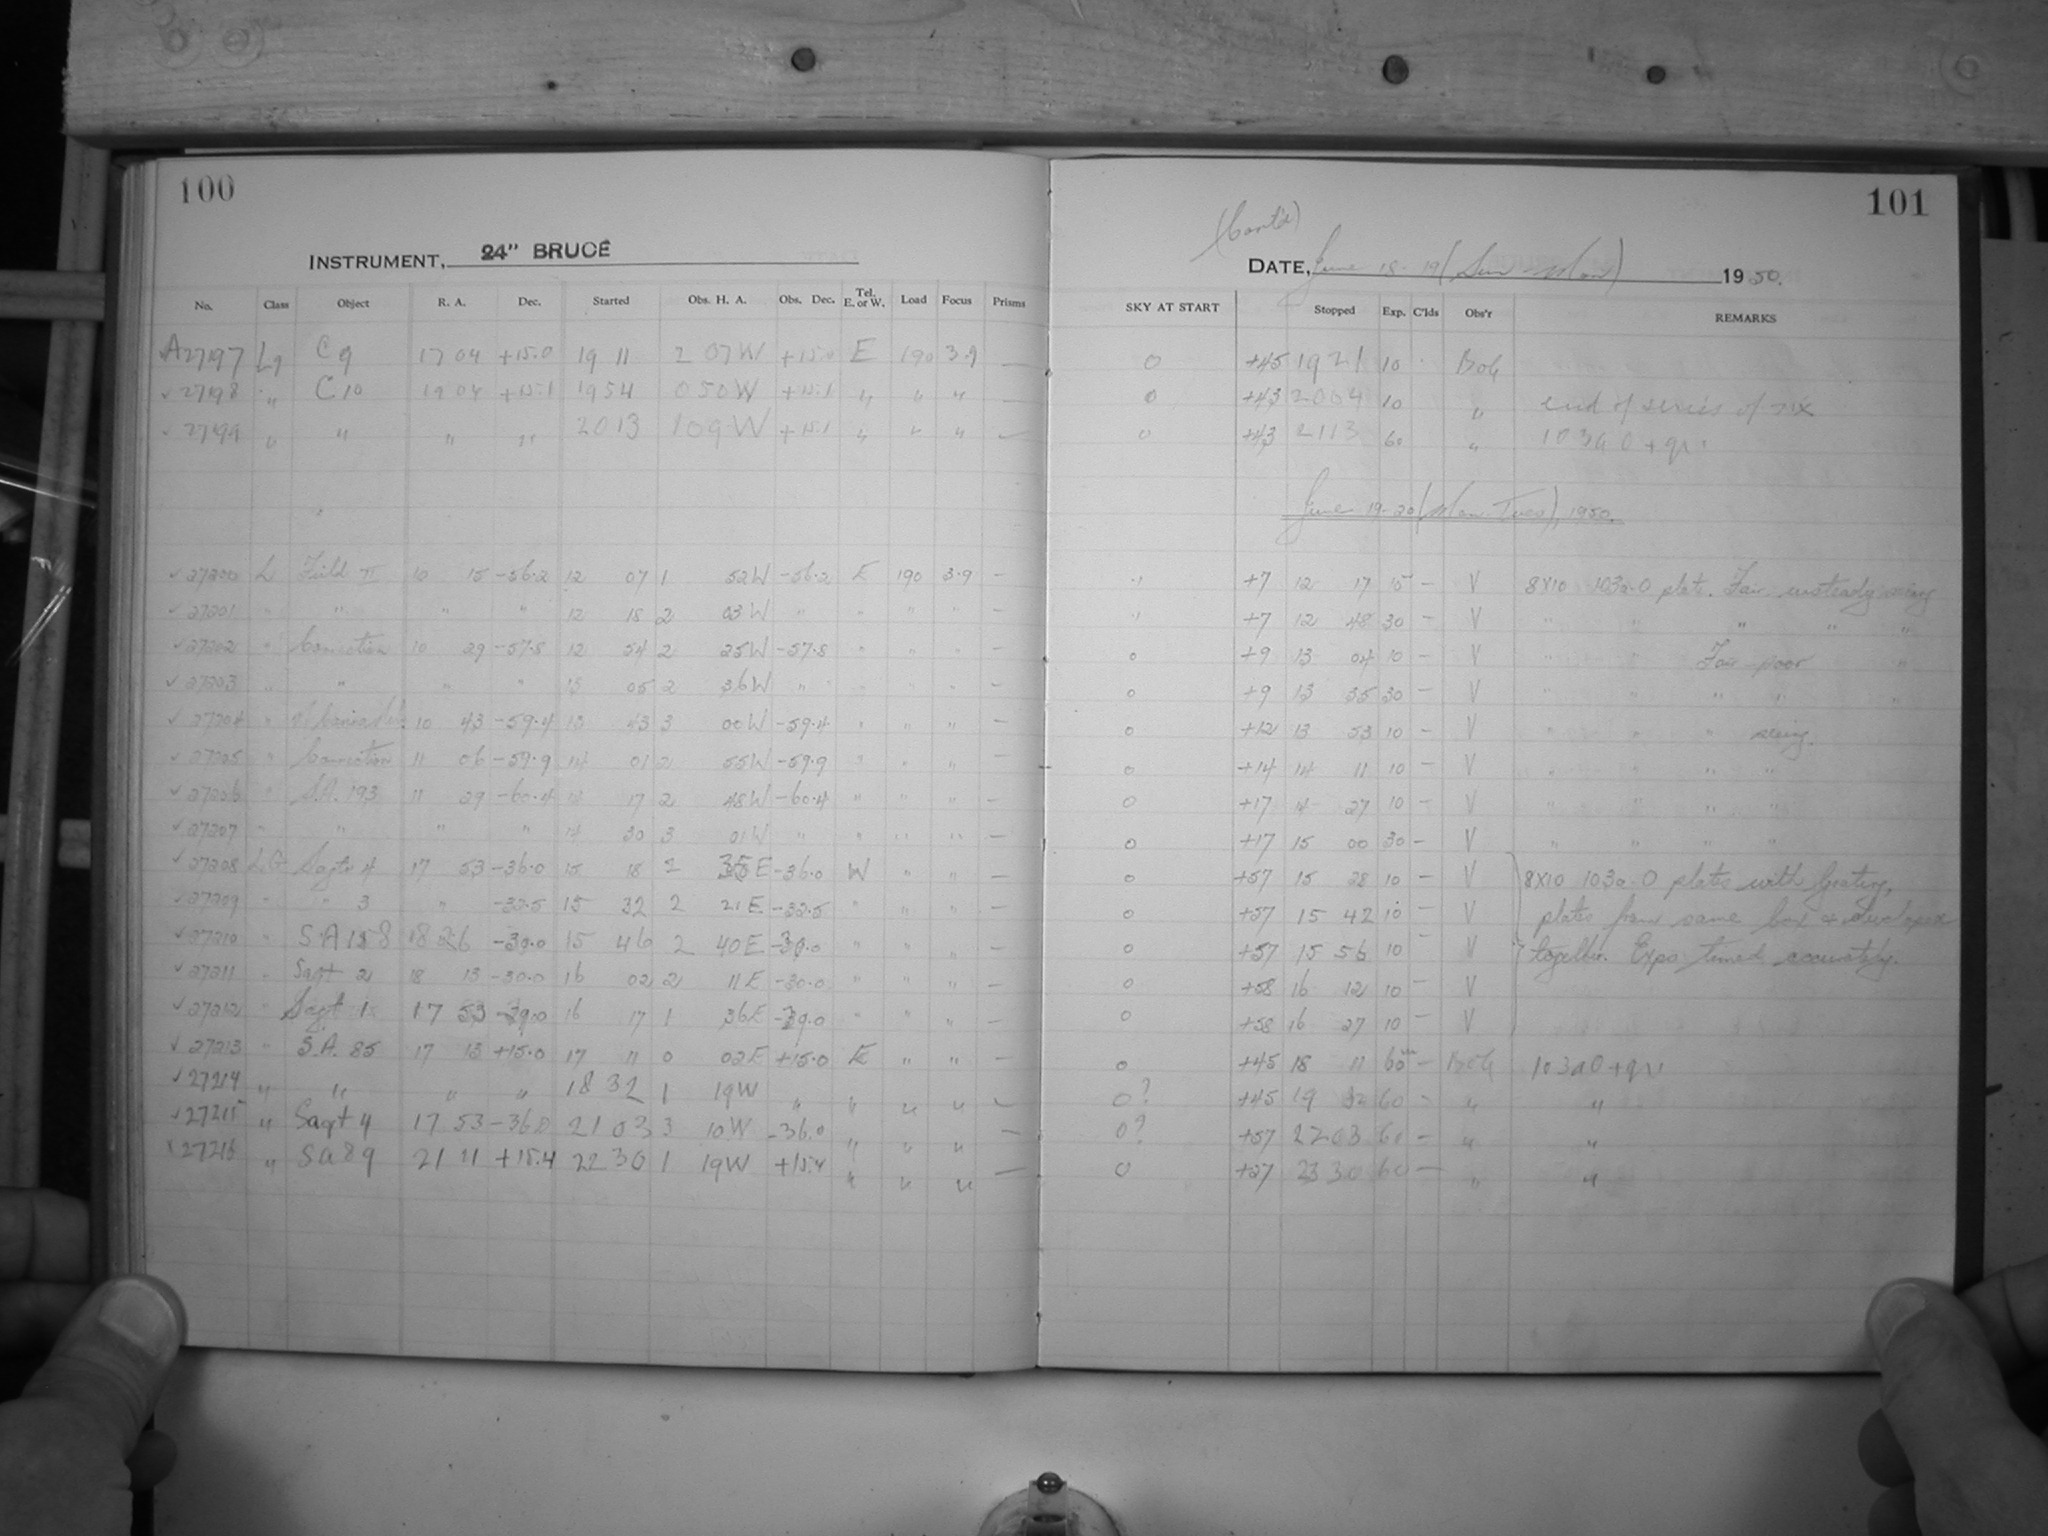 100
INSTRUMENT, 24" BRUCE
No. Class Object R. A. Dec. Started Obs. H. A. Obs. Dec. Tel. E. or W. Load Focus Prisms
A27197 Lg C9 17 04 +15.0 19 11 2 07W +15.0 E 190 3.9 —
✓27198 " C10 19 04 +15.1 1954 0 50W +15.1 " " " —
✓27199 " " " " 2013 1 09W +15.1 " " " —
✓27200 L Field II 10 15 -56.2 12 07 1 52W -56.2 E 190 3.9 —
✓27201 " " " " 12 18 2 03W " " " " —
✓27202 " 10 29 -57.8 12 54 2 25W -57.8 " " " —
✓27203 " " " " 13 05 2 36W " " " " —
✓27204 " 10 43 -59.4 13 43 3 00W -59.4 " " " —
✓27205 " 11 06 -59.9 14 01 2 55W -59.9 " " " —
✓27206 " S.A. 193 11 29 -60.4 14 17 2 48W -60.4 " " " —
✓27207 " " " " 14 30 3 01W " " " " —
✓27208 LG Sagtr 4 17 53 -36.0 15 18 2 35E -36.0 W " " —
✓27209 " " 3 " -32.5 15 32 2 21E -32.5 " " " —
✓27210 " SA158 18 26 -30.0 15 46 2 40E -30.0 " " "
✓27211 " Sagt 2 18 13 -30.0 16 02 2 11E -30.0 " " " —
✓27212 " Sagt 1 17 53 -29.0 16 17 1 36E -29.0 " " " —
✓27213 " S.A. 85 17 13 +15.0 17 11 0 02E +15.0 E " " —
✓27214 " " " " 18 32 1 19W " " " " —
✓27215 " Sagt 4 17 53 -36.0 21 03 3 10W -36.0 " " " —
✓27216 " SA89 21 11 +15.4 22 30 1 19W +15.4 " " " —
101
(Cont'd)
DATE, June 18-19 (Sun-Mon) 1950.
SKY AT START Stopped Exp. C'lds Obs'r REMARKS
0 +45 1921 10 Bob
0 +43 2004 10 " end of series of six
0 +43 2113 60 " 103a0+gr.
June 19-20 (Mon-Tues), 1950.
.1 +7 12 17 10 — V 8X10 103a-O plate. Fair unsteady seeing
.1 +7 12 48 30 — V " " " " "
0 +9 13 04 10 — V " " Fair-poor "
0 +9 13 35 30 — V " " " " "
0 +12 13 53 10 — V " " " seeing.
0 +14 14 11 10 — V " " " "
0 +17 14 27 10 — V " " " "
0 +17 15 00 30 — V " " " "
0 +57 15 28 10 — V 8X10 103a-O plates with Grating,
0 +57 15 42 10 — V plates from same box &
0 +57 15 56 10 — V together. Expo timed accurately.
0 +58 16 12 10 — V
0 +58 16 27 10 — V
0 +45 18 11 60m — Bob 103a0+gr.
0? +45 19 32 60 — " "
0? +57 2203 60 — " "
0 +27 2330 60 — " "